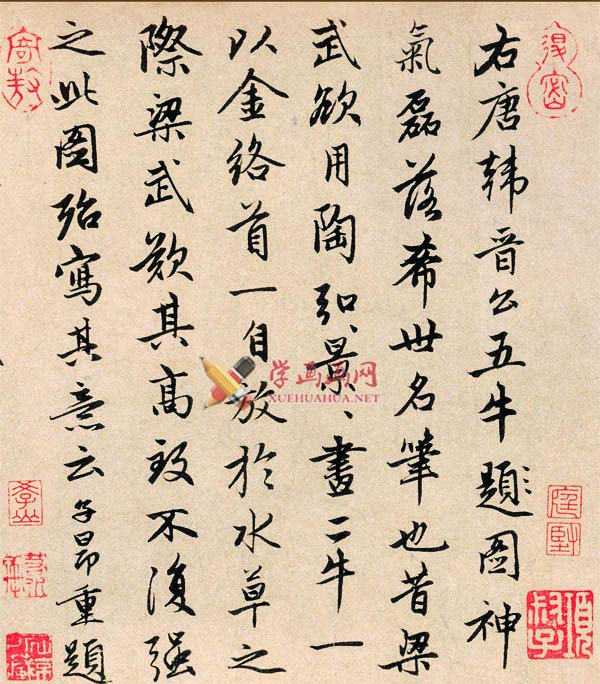 右唐韓晉公五牛題圖神
氣磊落希世名筆也昔梁
武欲用陶弘景、畫二牛一
以金絡首一自放於水草之
際梁武歎其高致不復強
之此圖殆寫其意云子昂重題
学画画网
XUEHUAHUA.NET